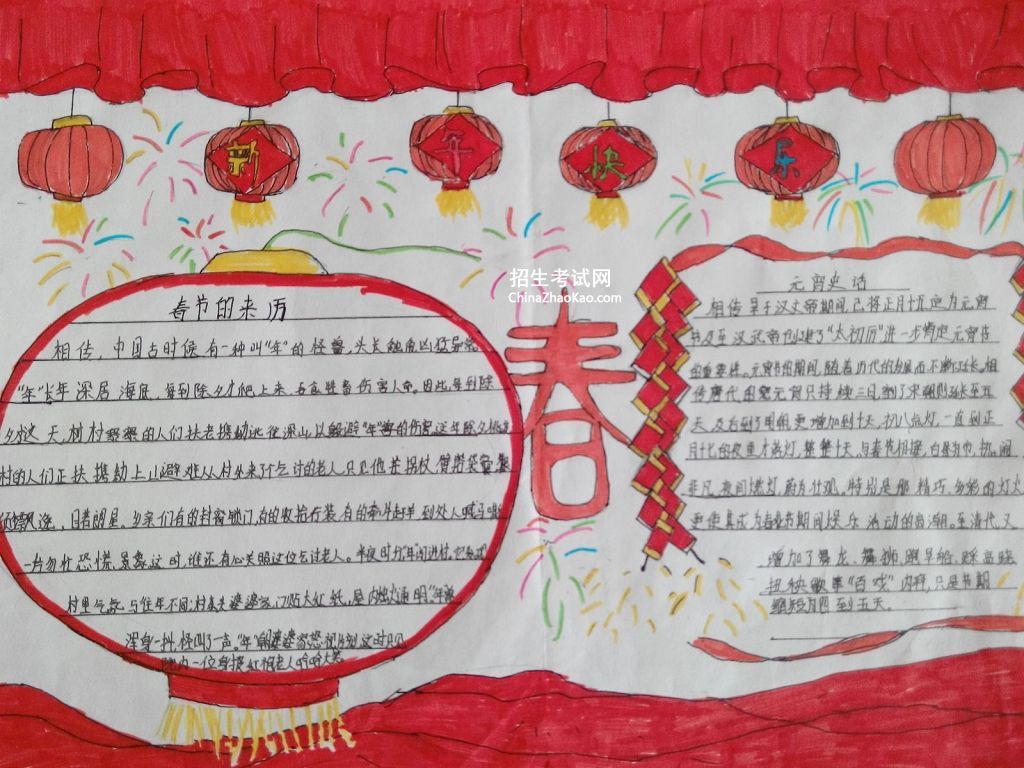 新
年
快
乐
招生考试网
ChinaZhaoKao.com
春
春节的来历
相传，中国古时候有一种叫"年"的怪兽，头长触角凶猛异常
"年"长年深居海底，每到除夕才爬上来，吞食牲畜伤害人命。因此，每到除
夕这天，村村寨寨的人们扶老携幼逃往深山，以躲避"年"兽的伤害，这年除夕桃花
村的人们正扶携幼上山避难从村外来了个乞讨的老人只见他
日若朗星。乡亲们有的封窗锁门，有的收拾行装，有的牵牛赶羊到处人喊马嘶
一台匆忙恐慌景象，这时，谁还有心关照这位乞讨老人。半夜时分"年"闯进村，它发现
村里气氛与往年不同：村东老婆婆家，门贴大红纸，屋内烛火通明"年"兽
浑身一抖，怪叫了一声。"年"朝婆婆家怒视片刻这时只见
院内一位身披红袍老人哈哈大笑
元宵史话
相传早于汉文帝期间，已将正月十五定为元宵
节及至汉武帝创建了"太初历"进一步肯定元宵节
的重要性。元宵节的期间，随着历代的发展而不断延长。相
传唐代的闹元宵只持续三日，到了宋朝则延长至五
天，及后到了明朝更增加到十天，初八点灯，一直到正
月十七的夜里才落灯，整整十天，与春节相接，白昼为市，热闹
非凡，夜间燃灯，蔚为壮观。特别是那精巧、多彩的灯火
更使其成为春节期间娱乐活动的高潮。至清代，又
增加了舞龙、舞狮、跑旱船、踩高跷
扭秧歌等"百戏"内容，只是节期
缩短为四到五天。